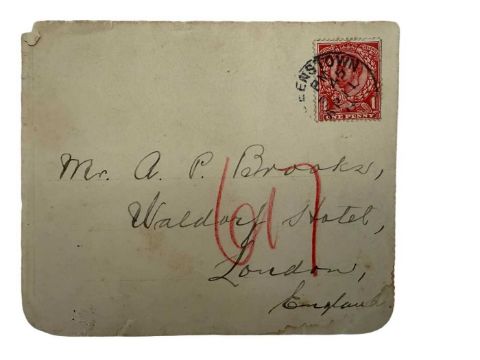 EENSTOWN
ONE PENNY 1
Mr. A. P. Brooks,
Waldorf Hotel,
London,
England
617